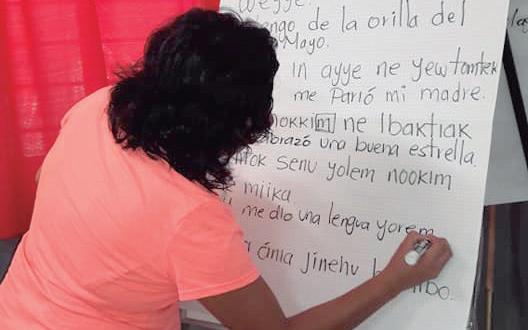 weyye.
vengo de la orilla del
Mayo.
in ayye ne yewtomtek
me Parió mi madre.
nokkim ne Ibaktiak
abrazó una buena estrella.
senu yolem nookim
miika
me dio una lengua yorem
ánia jinehu